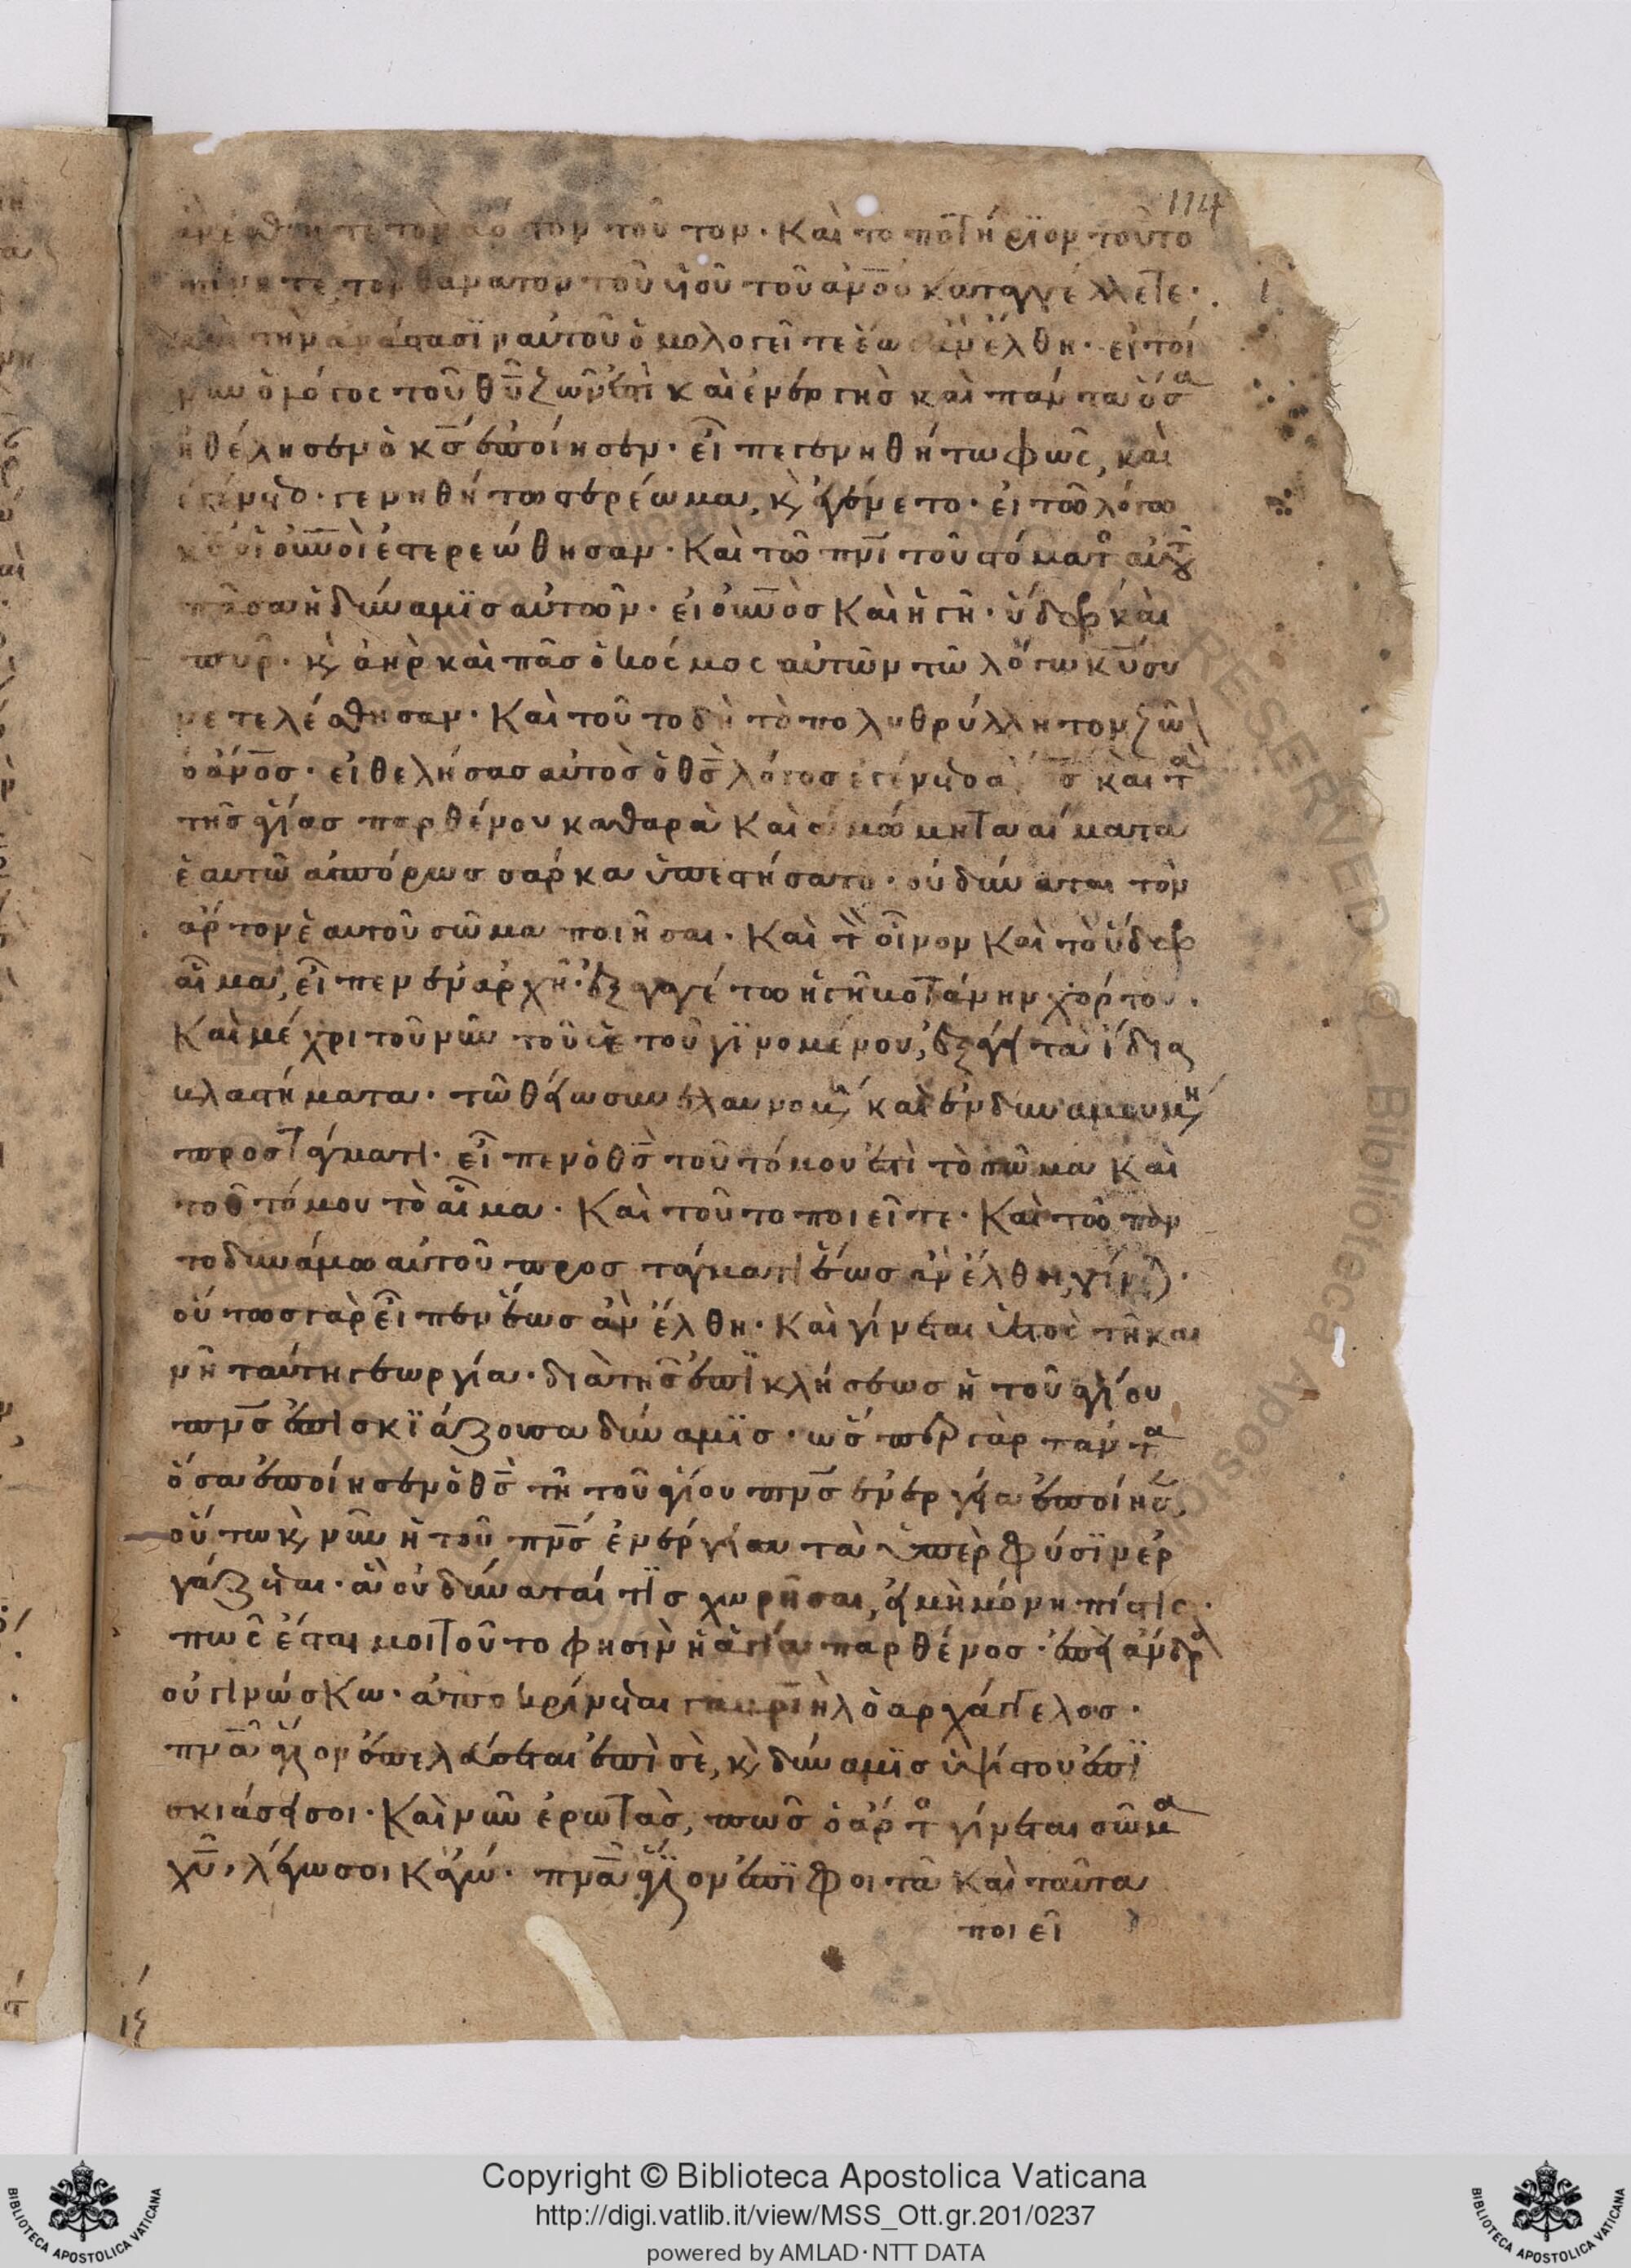 114
ἂν ἐσθίητε τὸν ἄρτον τοῦτον· Καὶ τὸ ποτήριον τοῦτο
πίνητε, τὸν θάνατον τοῦ υἱοῦ τοῦ ἀν̅ου καταγγέλλετε·
καὶ τὴν ἀνάστασϊν αὐτοῦ ὁμολογεῖτε ἕως ἂν ἔλθη· εἰ τοί
νυν ὁ λόγος τοῦ θ̅υ ζῶν ἐστὶ καὶ ἐνεργὴσ καὶ πάντα ὅσα
ἠθέλησεν ὁ κ̅σ ἐποίησεν· εἶπε γενηθήτω φῶς, καὶ
ἐγένετο· γενηθήτω στερέωμα, κ ἐγένετο· εἰ τῶ λόγω
κ̅υ οἱ οὐ̅νοὶ ἐστερεώθησαν· Καὶ τῶ πν̅ι τοῦ στόματ αὐτοῦ
πᾶσα ἡ δύναμϊσ αὐτῶν· εἰ οὐ̅νὸσ Καὶ ἡ γῆ· ὕδωρ καὶ
πυρ· κ ἀὴρ καὶ πᾶσ ὁ κόσμος αὐτῶν τῶ λόγω κ̅υ συ
νετελέσθησαν· Καὶ τοῦτο δὴ τὸ πολυθρύλλητον ζῶ
ὁ ἄν̅οσ· εἰ θελήσασ αὐτὸσ ὁ θ̅σ λόγοσ ἐγένετο ἄν̅οσ καὶ τὰ
τῆσ ἁγίασ παρθένου καθαρὰ Καὶ ἀμώμητα αἵματα
ἑαυτῶ ἀσπόρωσ σάρκα ὑπεστήσατο· οὐ δύναται τὸν
ἄρτον ἑαυτοῦ σῶμα ποιῆσαι· Καὶ τὸν οἶνον Καὶ τὸ ὕδωρ
αἷμα, εἶπεν ἐν ἀρχῆ· ἐξαγαγέτω ἡ γῆ βοτάνην χόρτου·
Καὶ μέχρι τοῦ νῦν τοῦ ὑετοῦ γϊνομένου, ἐξάγει τὰ ἴδια
βλαστήματα· τῶ θείω συνελαυνομένη καὶ ἐνδυναμουμένη
προστάγματι· εἶπεν ὁ θ̅σ τοῦτό μου ἐστὶ τὸ σῶμα Καὶ
τοῦτό μου τὸ αἷμα· Καὶ τοῦτο ποιεῖτε· Καὶ τῶ παν
τοδυνάμω αὐτοῦ προστάγματι ἕωσ ἂν ἔλθη, γίνεται·
οὕτωσ γὰρ εἶπεν ἕωσ ἂν ἔλθη· Καὶ γίνεται ὑετὸς τῆ και
νῆ ταύτη γεωργία· διὰ τῆσ ἐπϊκλήσεωσ ἡ τοῦ ἁγίου
πν̅σ ἐπισκϊάζουσα δύναμϊσ· ὥσπερ γὰρ πάντα
ὅσα ἐποίησεν ὁ θ̅σ τῆ τοῦ ἁγίου πν̅σ ἐνεργεία ἐποίησεν,
οὕτω κ νῦν ἡ τοῦ πν̅σ ἐνέργεια τὰ ὑπὲρ φύσϊν ἐρ
γάζεται· ἃ οὐ δύναταί τϊσ χωρῆσαι, εἰ μὴ μόνη πίστις·
πῶς ἔσται μοι τοῦτο φησὶν ἡ ἁγία παρθένοσ· ἐπεὶ ἄνδρα
οὐ γινώσκω· ἀποκρίνεται γαβριὴλ ὁ ἀρχάγγελοσ·
πν̅α ἅγιον ἐπελεύσεται ἐπὶ σὲ, κ δύναμϊσ ὑψίστου ἐπϊ
σκιάσει σοι· Καὶ νῦν ἐρωτᾶσ, πῶσ ὁ ἄρτος γίνεται σῶμα
χ̅υ, λέγω σοι κἀγώ· πν̅α ἅγϊον ἐπϊφοιτᾶ καὶ ταῦτα
ποιεῖ
ιϛ
Copyright © Biblioteca Apostolica Vaticana
http://digi.vatlib.it/view/MSS_Ott.gr.201/0237
powered by AMLAD·NTT DATA